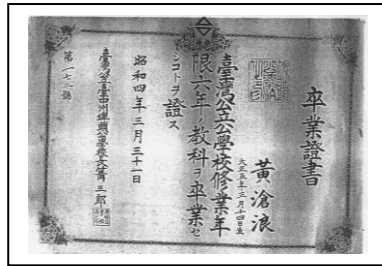 卒業證書
黃滄浪
大正五年三月十四日生
臺灣公立公學校修業年
限六年ノ教科ヲ卒業セ
シコトヲ證ス
昭和四年三月三十一日
臺灣公立臺中州埤頭公學校長菁三郎
第一七二號